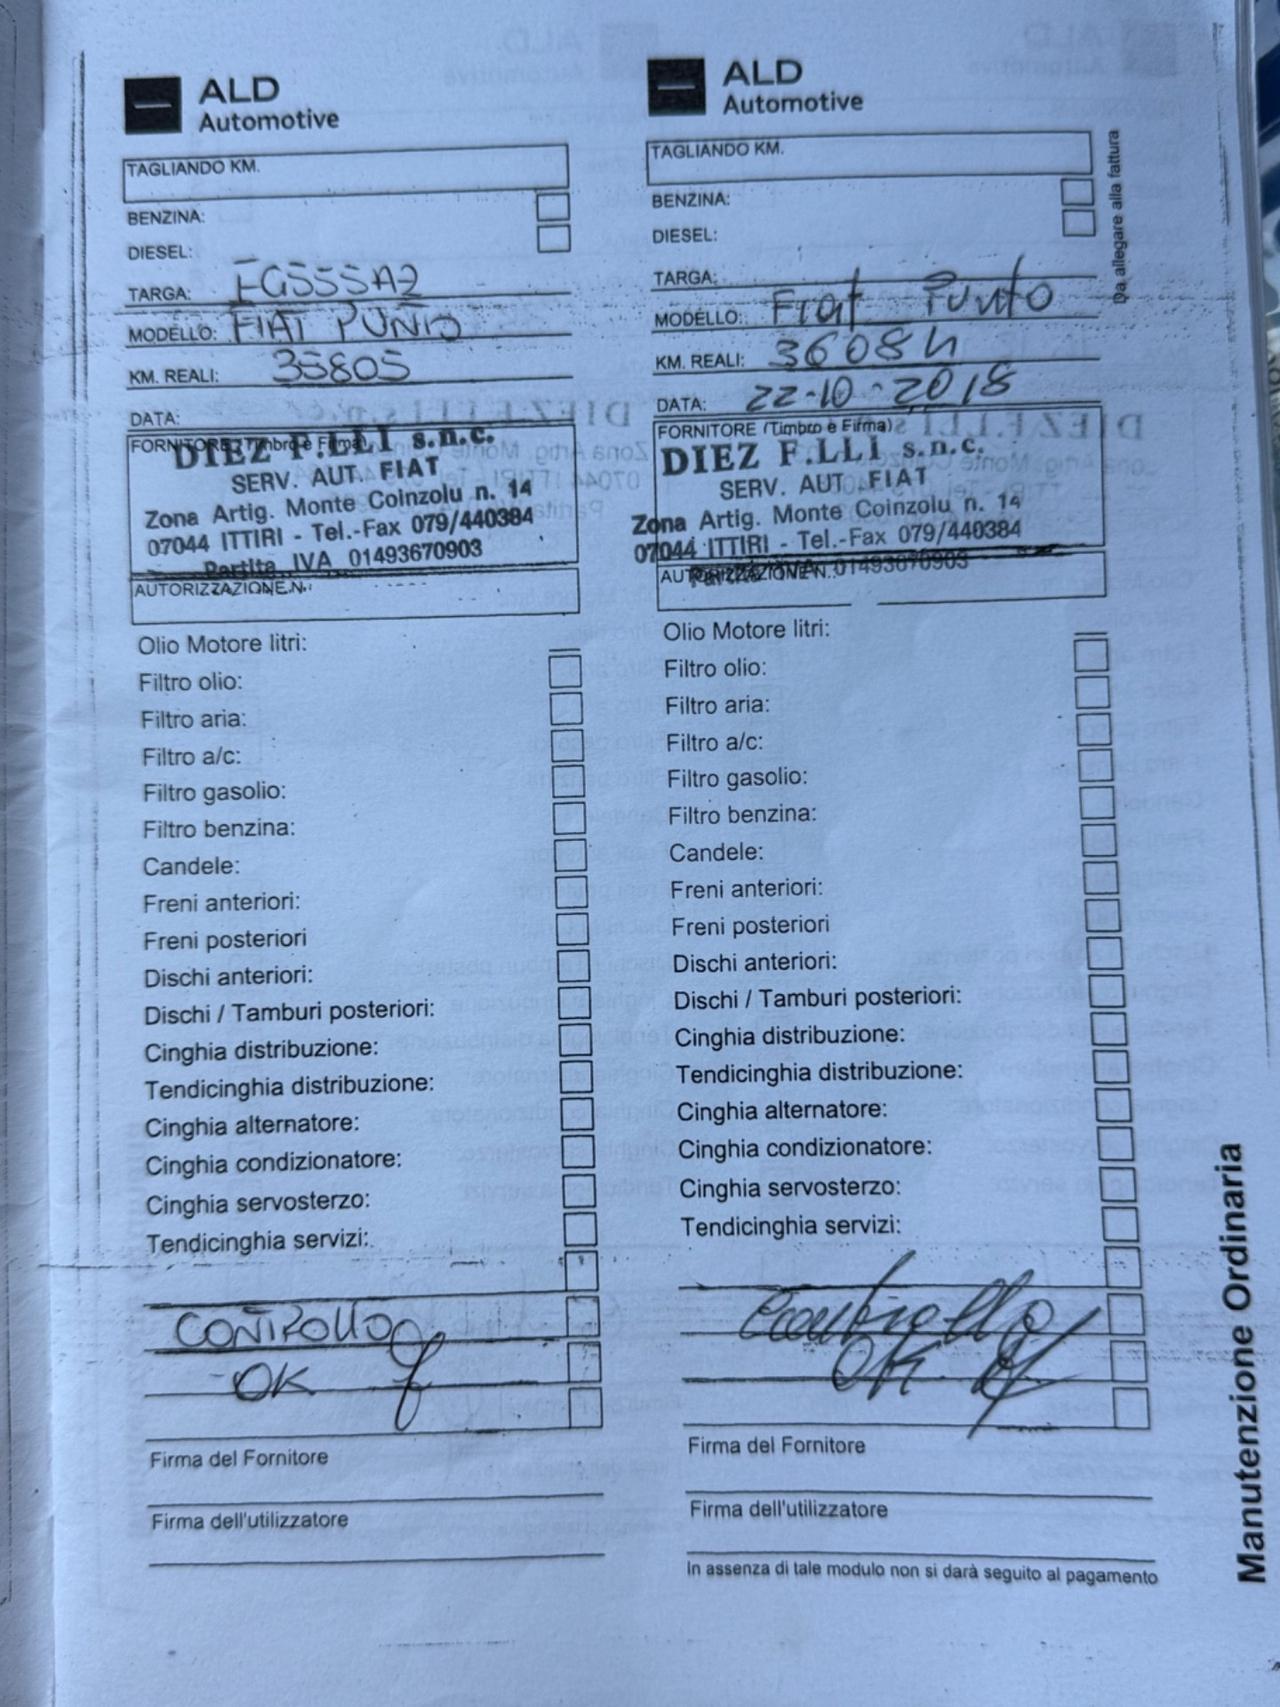 ALD
Automotive
TAGLIANDO KM.
BENZINA:
DIESEL:
TARGA:
MODELLO: FIAT PUNTO
KM. REALI: 35805
DATA:
FORNITORE (Timbro e Firma)
DIEZ F.LLI s.n.c.
SERV. AUT. FIAT
Zona Artig. Monte Coinzolu n. 14
07044 ITTIRI - Tel.-Fax 079/440384
Partita IVA 01493670903
AUTORIZZAZIONE N.:
Olio Motore litri:
Filtro olio:
Filtro aria:
Filtro a/c:
Filtro gasolio:
Filtro benzina:
Candele:
Freni anteriori:
Freni posteriori
Dischi anteriori:
Dischi / Tamburi posteriori:
Cinghia distribuzione:
Tendicinghia distribuzione:
Cinghia alternatore:
Cinghia condizionatore:
Cinghia servosterzo:
Tendicinghia servizi:
CONTROLLO
OK
Firma del Fornitore
Firma dell'utilizzatore
ALD
Automotive
TAGLIANDO KM.
BENZINA:
DIESEL:
TARGA:
MODELLO: Fiat Punto
KM. REALI: 36084
DATA: 22-10-2018
FORNITORE (Timbro e Firma)
DIEZ F.LLI s.n.c.
SERV. AUT. FIAT
Zona Artig. Monte Coinzolu n. 14
07044 ITTIRI - Tel.-Fax 079/440384
Partita IVA 01493670903
AUTORIZZAZIONE N.:
Olio Motore litri:
Filtro olio:
Filtro aria:
Filtro a/c:
Filtro gasolio:
Filtro benzina:
Candele:
Freni anteriori:
Freni posteriori
Dischi anteriori:
Dischi / Tamburi posteriori:
Cinghia distribuzione:
Tendicinghia distribuzione:
Cinghia alternatore:
Cinghia condizionatore:
Cinghia servosterzo:
Tendicinghia servizi:
Controllo
OK
Firma del Fornitore
Firma dell'utilizzatore
In assenza di tale modulo non si darà seguito al pagamento
Da allegare alla fattura
Manutenzione Ordinaria